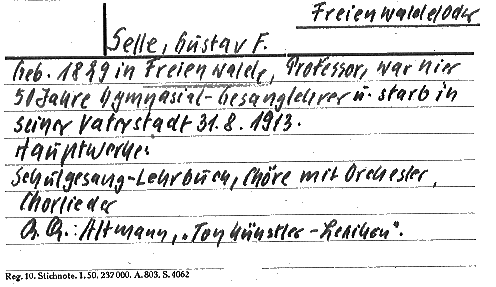 Freienwalde/Oder
Selle, Gustav F.
Geb. 1829 in Freienwalde, Professor, war hier
50 Jahre Gymnasial-Gesanglehrer u. starb in
seiner Vaterstadt 31.8.1913.
Hauptwerke:
Schulgesang-Lehrbuch, Chöre mit Orchester,
Chorlieder
Qu.: Altmann, „Tonkünstler-Lexikon".
Reg. 10. Stichnote. 1. 50. 237000. A. 803. S. 4062